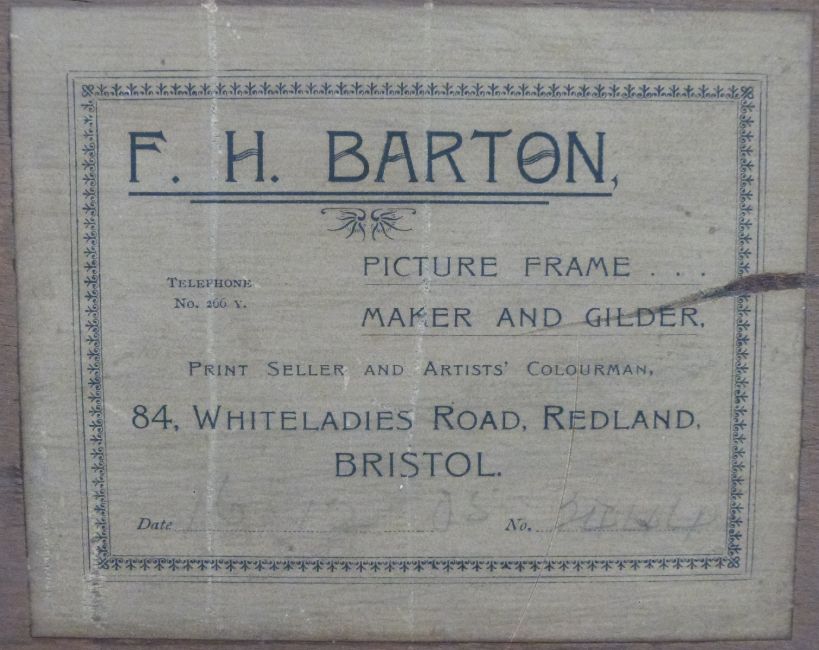 F. H. BARTON,
TELEPHONE
No. 266 Y.
PICTURE FRAME . . .
MAKER AND GILDER,
PRINT SELLER AND ARTISTS' COLOURMAN,
84, WHITELADIES ROAD, REDLAND,
BRISTOL.
Date No.